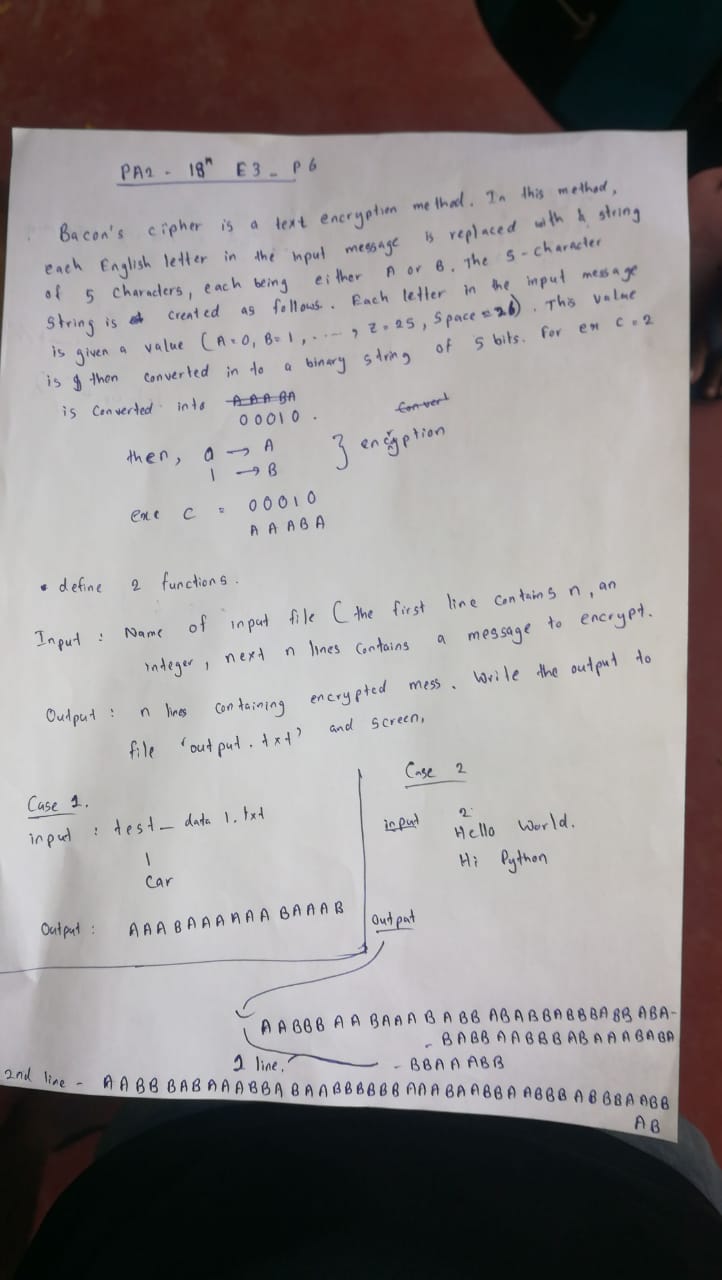 PA2 - 18" E3 - P6
Bacon's cipher is a text encryption method. In this method,
each English letter in the input message is replaced with a string
of 5 characters, each being either A or B. The 5-character
string is created as follows. Each letter in the input message
is given a value (A=0, B=1, ...., Z=25, Space=26). This value
is then converted in to a binary string of 5 bits. for ex C=2
is converted into A A A BA
00010.
Convert
then, 0 → A
1 → B
} encryption
exe C = 00010
A A A B A
• define 2 functions.
Input : Name of input file ( the first line contains n, an
integer, next n lines contains a message to encrypt.
Output : n lines containing encrypted mess. Write the output to
file 'output.txt' and screen,
Case 1.
input : test_ data 1. txt
1
Car
Output : AAABAAAAAABAAAB
Case 2
input 2
Hello World.
Hi Python
Output
AABBB AA BAAA B ABB ABABBABBBABB ABA-
- BABB AABBB ABAAABABA
1 line. - BBAAABB
2nd line - AABBBABAAABBABAABBBBBBAAABAABBAABBBABBBAABB
AB